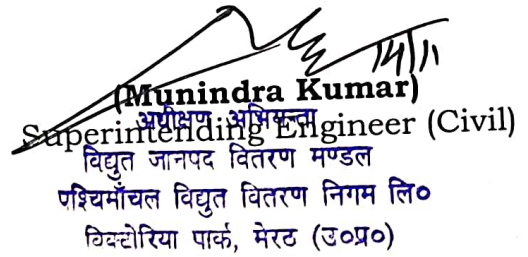 14/11
(Munindra Kumar)
अधीक्षण अभियन्ता
Superintending Engineer (Civil)
विद्युत जानपद वितरण मण्डल
पश्चिमाँचल विद्युत वितरण निगम लि०
विक्टोरिया पार्क, मेरठ (उ०प्र०)